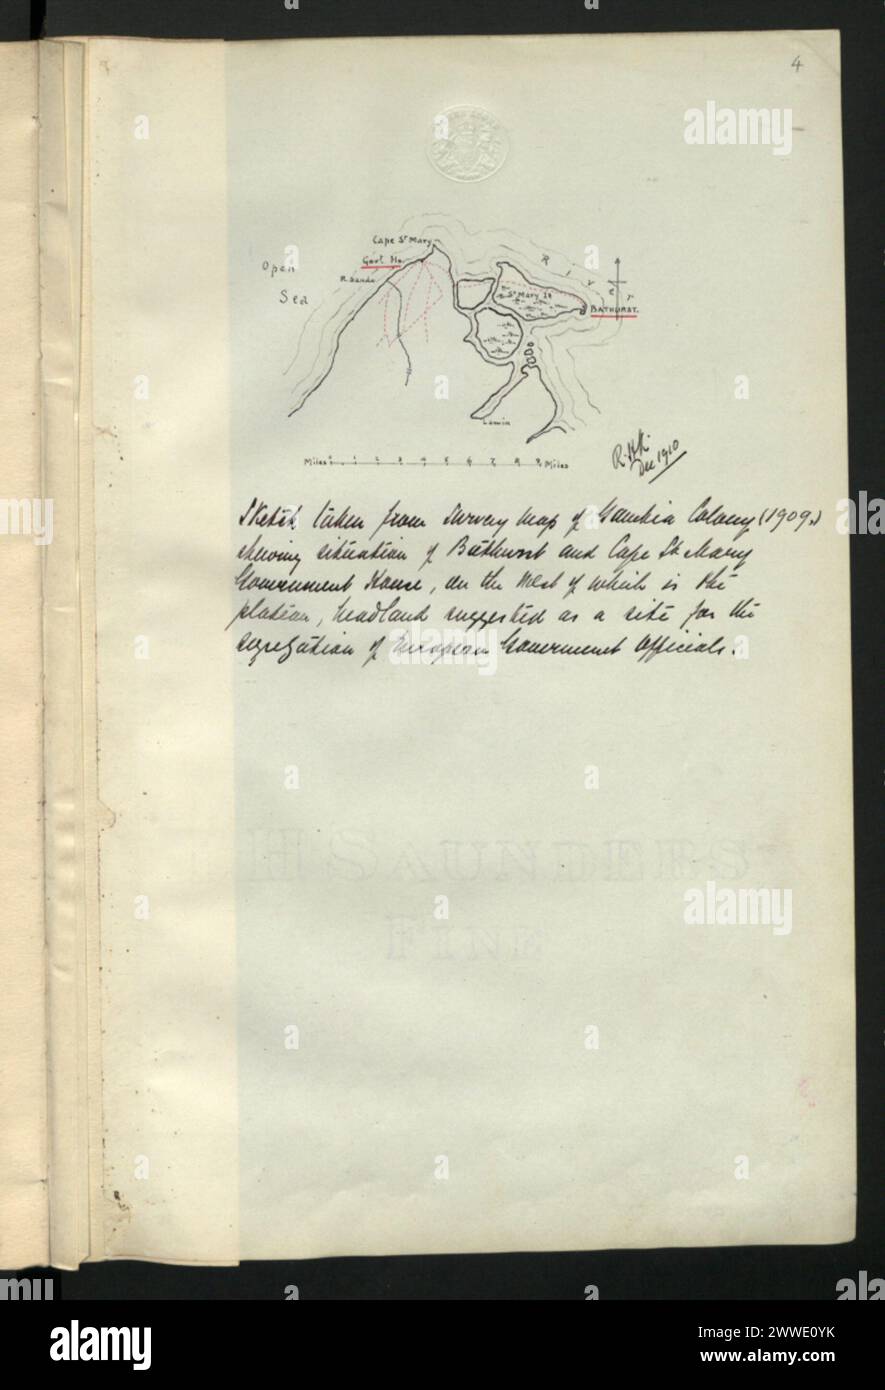 4
Cape St Mary
Govt. Ho.
Open
Sea
River
St Mary Is
BATHURST.
Lamin
Miles 0 1 2 3 4 5 6 7 8 9 Miles
Dec 1910
Sketch taken from Survey map of Gambia Colony (1909.)
shewing situation of Bathurst and Cape St. Mary
Government House, on the West of which is the
plateau, headland suggested as a site for the
segregation of European Government Officials.
T H SAUNDERS
FINE
a
alamy
alamy
Image ID: 2WWE0YK
www.alamy.com